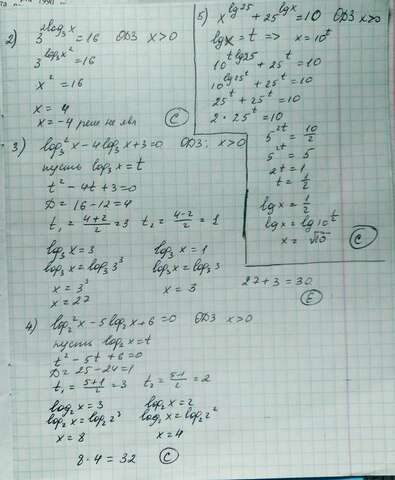 2) 3^{2log_3 x} = 16 ОДЗ x>0
3^{log_3 x^2} = 16
x^2 = 16
x = 4
x = -4 реш не явл
(C)
3) log_3^2 x - 4log_3 x + 3 = 0 ОДЗ: x>0
пусть log_3 x = t
t^2 - 4t + 3 = 0
D = 16 - 12 = 4
t_1 = (4+2)/2 = 3 t_2 = (4-2)/2 = 1
log_3 x = 3 log_3 x = 1
log_3 x = log_3 3^3 log_3 x = log_3 3
x = 3^3 x = 3
x = 27
27 + 3 = 30
(E)
4) log_2^2 x - 5log_2 x + 6 = 0 ОДЗ x>0
пусть log_2 x = t
t^2 - 5t + 6 = 0
D = 25 - 24 = 1
t_1 = (5+1)/2 = 3 t_2 = (5-1)/2 = 2
log_2 x = 3 log_2 x = 2
log_2 x = log_2 2^3 log_2 x = log_2 2^2
x = 8 x = 4
8 · 4 = 32 (C)
5) x^{lg 25} + 25^{lg x} = 10 ОДЗ x>0
lg x = t => x = 10^t
10^{t lg 25} + 25^t = 10
10^{lg 25^t} + 25^t = 10
25^t + 25^t = 10
2 · 25^t = 10
5^{2t} = 10/2
5^{2t} = 5
2t = 1
t = 1/2
lg x = 1/2
lg x = lg 10^t
x = √10 (C)